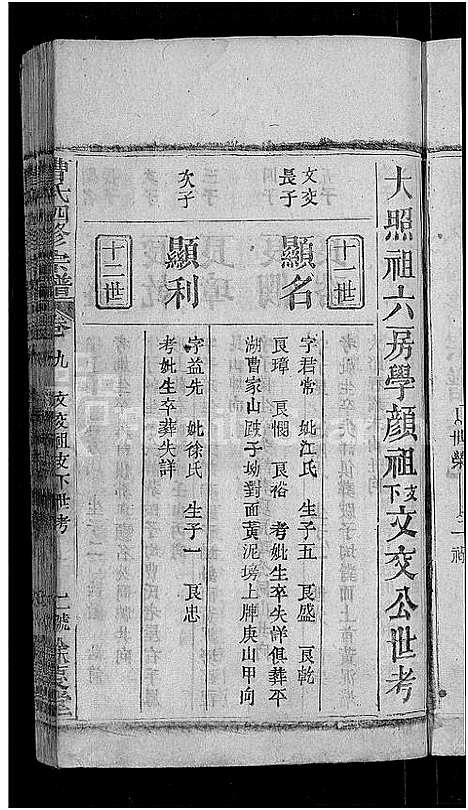 大照祖六房學顏祖支下文交公世考
十二世
文交長子
顯名
字若常 妣江氏 生子五 良盛 良乾
良璋 良憫 良裕 考妣生卒失詳俱葬平
湖曹家山跛子坳對面黃泥塝上脾庚山甲向
十二世
次子
顯利
字益先 妣徐氏 生子一 良忠
考妣生卒葬失詳
曹氏四修宗譜 卷九 文交祖支下世考